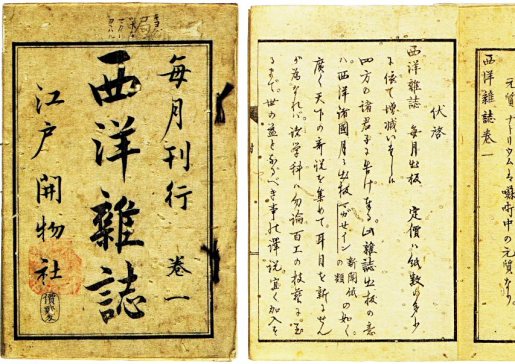 毎月刊行
西洋雜誌
巻一
江戸開物社
伏啓
西洋雜誌 毎月出板 定價ハ紙數の多少
に依て増減いたし候
四方の諸君子に告け奉る此雜誌出板の意
ハ西洋諸國月々出板マガセイン新聞紙の類の如く
廣く天下の奇説を集めて耳目を新にせん
か為なれハ諸学科ハ勿論百工の技藝に至
るまて世の益となるへき事の譯説宜く加入を
西洋雜誌巻一